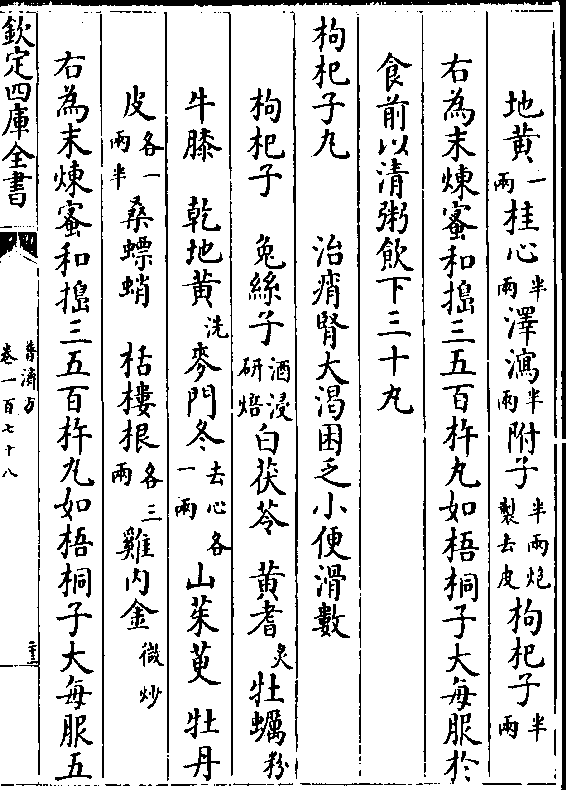 地黃一兩桂心半兩澤瀉半兩附子半兩炮製去皮枸杞子半兩
右為末煉蜜和搗三五百杵丸如梧桐子大每服於
食前以清粥飲下三十丸
枸杞子丸 治痟腎大渴困乏小便滑數
枸杞子 兔絲子酒浸研焙白茯苓 黃耆炙牡蠣粉
牛膝 乾地黃洗麥門冬去心各一兩山茱萸 牡丹
皮各一兩半桑螵蛸 栝樓根各三兩雞內金微炒
右為末煉蜜和搗三五百杵丸如梧桐子大每服五
欽定四庫全書
普濟方
卷一百七十八